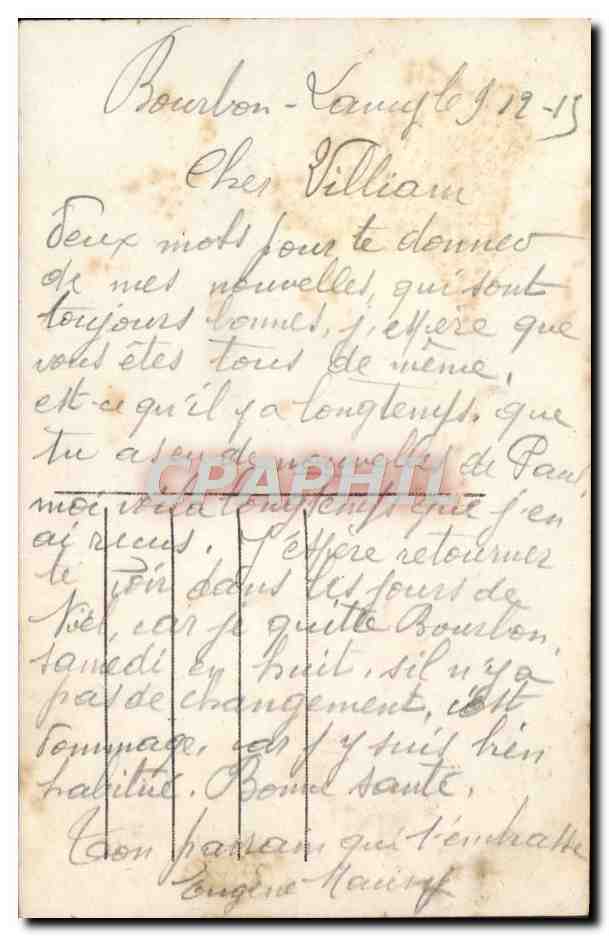 Bourbon-Lancy le 9 12-15
Cher William
Deux mots pour te donner
de mes nouvelles, qui sont
toujours bonnes, j'espère que
vous êtes tous de même,
est-ce qu'il y a longtemps, que
tu as eu de nouvelles de Paul,
CPAPHIL
moi voila longtemps que j'en
ai recus. J'espère retourner
te voir dans les jours de
Noël, car je quitte Bourbon,
samedi en huit, s'il n'y a
pas de changement, c'est
dommage, car j'y suis bien
habitué. Bonne santé,
Ton parrain qui t'embrasse
Eugène